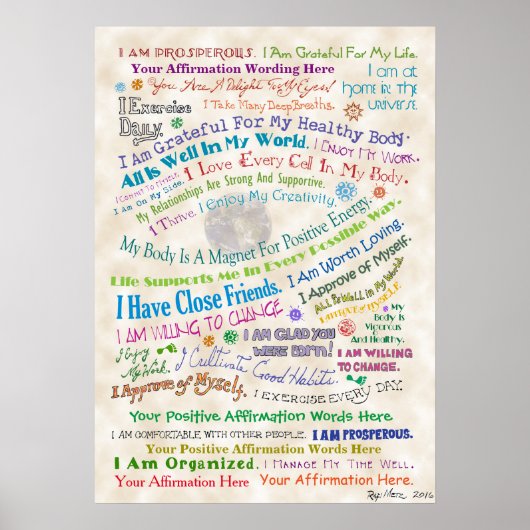 I AM PROSPEROUS. I Am Grateful For My Life.
Your Affirmation Wording Here
I am at home in the universe.
You Are A Delight To My Eyes!
I Exercise Daily.
I Take Many Deep Breaths.
I Am Grateful For My Healthy Body.
All Is Well In My World.
I Enjoy My Work.
I Commit To Myself.
I Am On My Side.
I Love Every Cell In My Body.
My Relationships Are Strong And Supportive.
I Thrive. I Enjoy My Creativity.
My Body Is A Magnet For Positive Energy.
Life Supports Me In Every Possible Way.
I Am Worth Loving.
I Have Close Friends.
I Approve of Myself.
All Is Well in My World.
I AM WILLING TO CHANGE
I AM GLAD YOU WERE BORN!
My Body Is Vigorous And Healthy.
I Enjoy My Work.
I Cultivate Good Habits.
I AM WILLING TO CHANGE.
I Approve of Myself.
I EXERCISE EVERY DAY.
Your Positive Affirmation Words Here
I AM COMFORTABLE WITH OTHER PEOPLE. I AM PROSPEROUS.
Your Positive Affirmation Words Here
I Am Organized. I Manage My Time Well.
Your Affirmation Here Your Affirmation Here.
2016